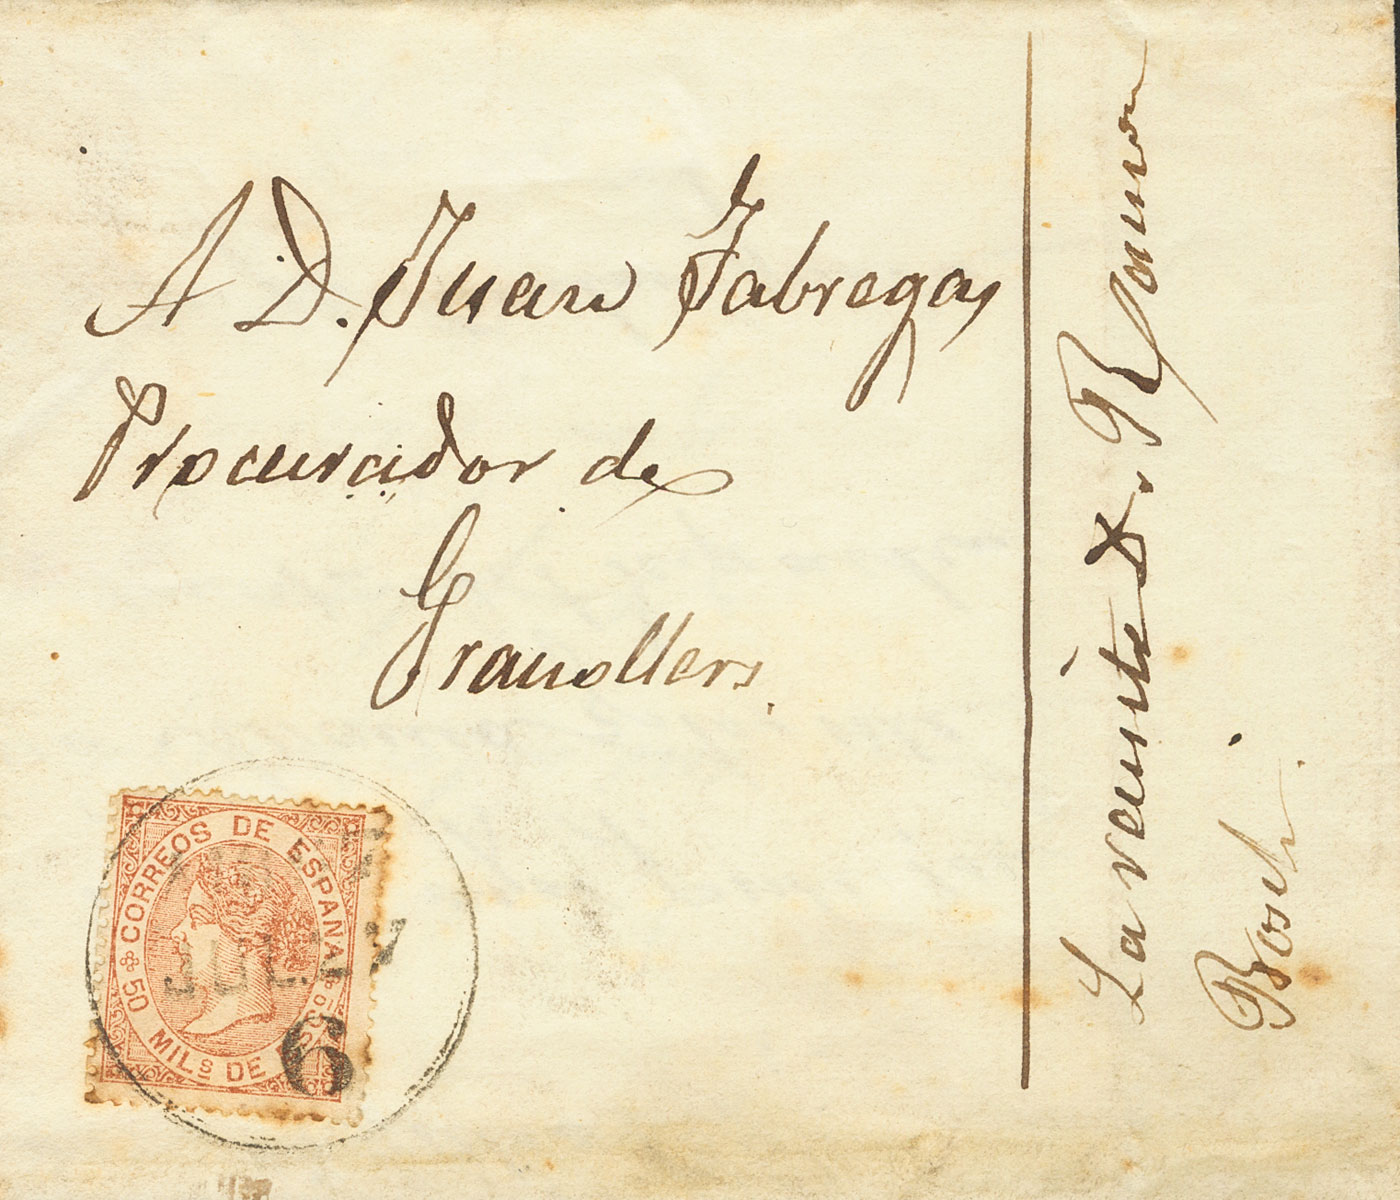 A D. Juan Fabregas
Procurador de
Granollers.
La remite D. Ramon
Bosch
CORREOS DE ESPAÑA
50 MILS DE ESCO
6